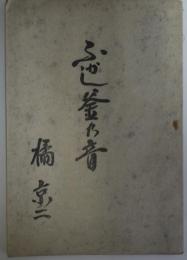 ふかし釜の音
橘京二